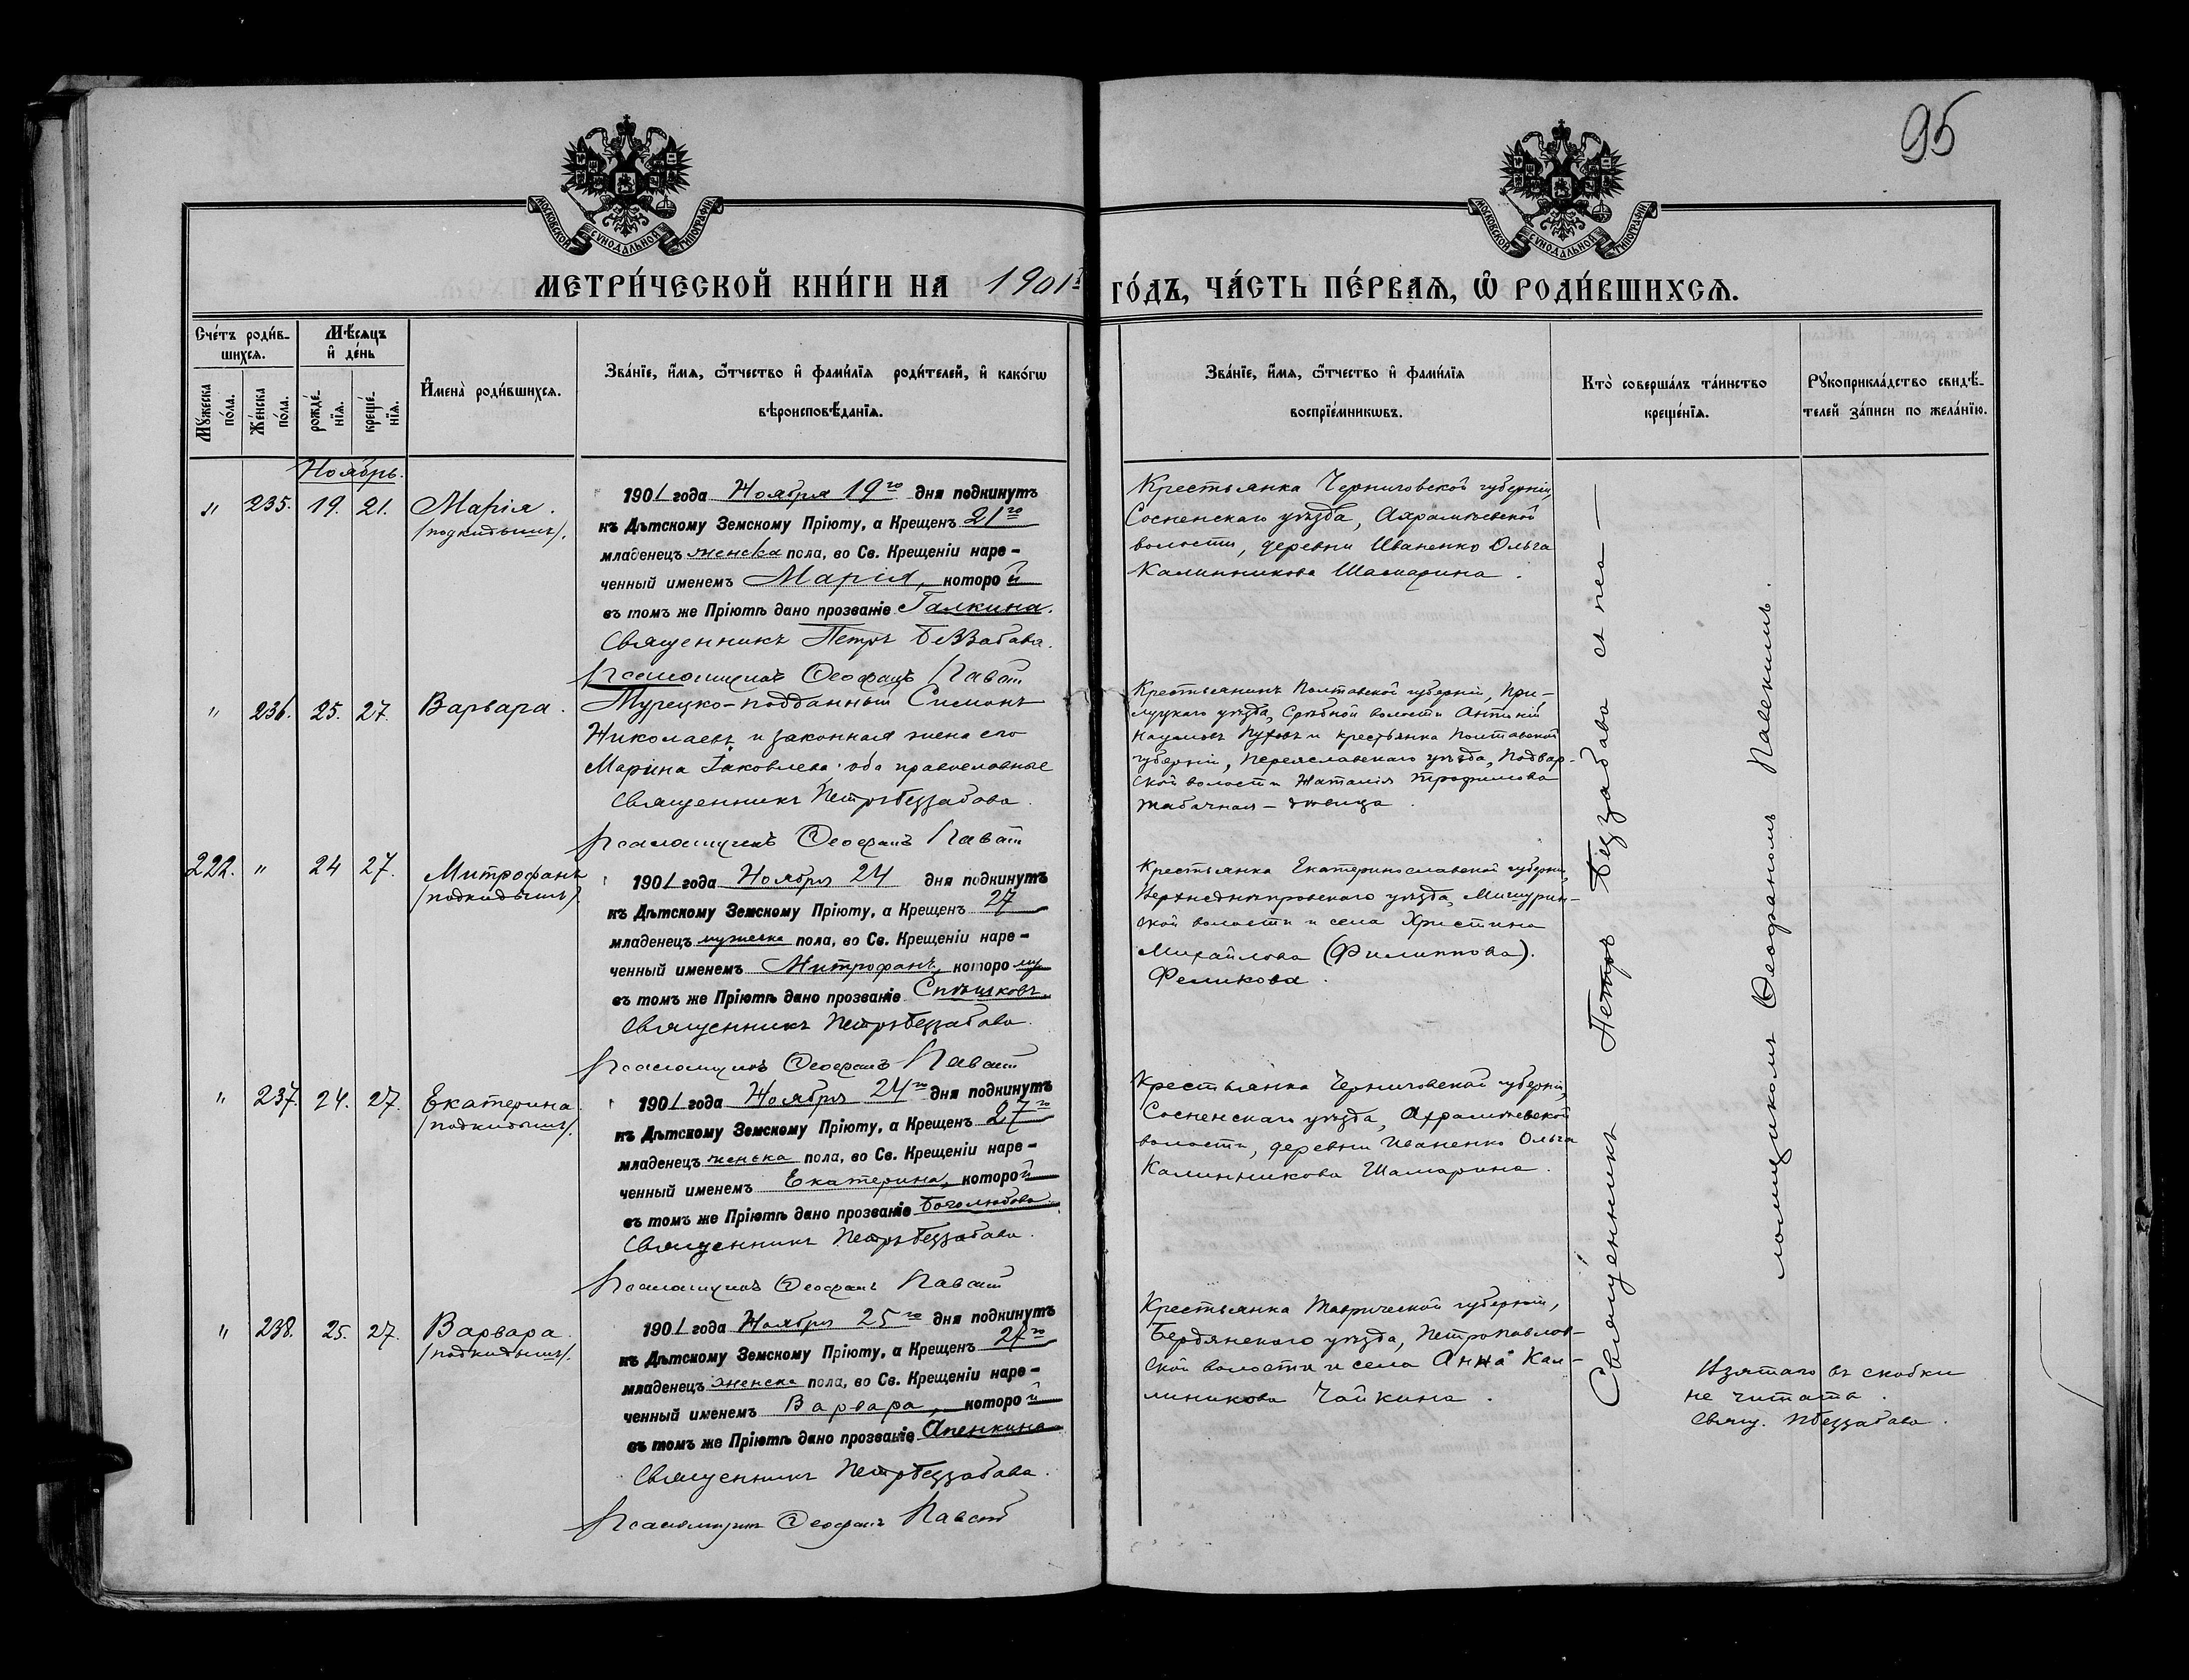 95
МОСКОВСКОЙ СѴНОДАЛЬНОЙ ТИПОГРАФІИ
МОСКОВСКОЙ СѴНОДАЛЬНОЙ ТИПОГРАФІИ
МЕТРИ́ЧЕСКОЙ КНИ́ГИ НА 1901й ГО́ДЪ, ЧА́СТЬ ПЕ́РВАѦ, Ѡ҆ РОДИ́ВШИХСѦ.
Сче́тъ роди́в-
шихсѧ.
Мꙋ́жеска
по́ла.
Же́нска
по́ла.
Мѣ́сѧцъ
и҆ де́нь
рожде́-
нїѧ.
креще́-
нїѧ.
И҆мена̀ роди́вшихсѧ.
Зва́нїе, и҆́мѧ, ѻ҆́тчество и҆ фами́лїѧ роди́телей, и҆ како́гѡ
вѣроисповѣ́данїѧ.
Зва́нїе, и҆́мѧ, ѻ҆́тчество и҆ фами́лїѧ
воспрїе́мникѡвъ.
Кто̀ соверша́лъ та́инство
креще́нїѧ.
Рꙋкоприкла́дство свидѣ́-
телей за́писи по жела́нїю.
Ноябрь.
" 235. 19. 21. Марія.
/подкидышъ/.
1901 года Ноября 19го дня подкинутъ
къ Дѣтскому Земскому Пріюту, а Крещенъ 21го
младенецъ женска пола, во Св. Крещеніи наре-
ченный именемъ Марія, которой
въ томъ же Пріютѣ дано прозваніе Галкина.
Священникъ Петръ Беззабава.
Псаломщикъ Ѳеофанъ
Крестьянка Черниговской губерніи,
Сосненскаго уѣзда, Ахрамѣевской
волости, деревни Иваненко Ольга
Калинникова Шамарина.
" 236. 25. 27. Варвара.
Турецко-подданный Симонъ
Николаевъ и законная жена его
Марина Іаковлева оба православные
Священникъ Петръ Беззабава.
Псаломщикъ Ѳеофанъ
Крестьянинъ Полтавской губерніи, При-
луцкаго уѣзда, Срѣбной волости Антоній
Наумовъ и крестьянка Полтавской
губерніи, Переяславскаго уѣзда, Подвар-
ской волости Наталія Трофимова
Табачная - дѣвица.
222. " 24 27. Митрофанъ
/подкидышъ/
1901 года Ноября 24 дня подкинутъ
къ Дѣтскому Земскому Пріюту, а Крещенъ 27
младенецъ мужеска пола, во Св. Крещеніи наре-
ченный именемъ Митрофанъ, которому
въ томъ же Пріютѣ дано прозваніе Спѣшковъ.
Священникъ Петръ Беззабава.
Псаломщикъ Ѳеофанъ
Крестьянка Екатеринославской губерніи,
Верхнеднѣпровскаго уѣзда, Мишурин-
ской волости и села Христина
Михайлова (Филиппова).
Феликова.
" 237. 24. 27. Екатерина
/подкидышъ/.
1901 года Ноября 24го дня подкинутъ
къ Дѣтскому Земскому Пріюту, а Крещенъ 27го
младенецъ женска пола, во Св. Крещеніи наре-
ченный именемъ Екатерина, которой
въ томъ же Пріютѣ дано прозваніе Боголюбова
Священникъ Петръ Беззабава.
Псаломщикъ Ѳеофанъ
Крестьянка Черниговской губерніи,
Сосненскаго уѣзда, Ахрамѣевской
волости, деревни Иваненко Ольга
Калинникова Шамарина.
" 238. 25. 27. Варвара.
/подкидышъ/.
1901 года Ноября 25го дня подкинутъ
къ Дѣтскому Земскому Пріюту, а Крещенъ 27го
младенецъ женска пола, во Св. Крещеніи наре-
ченный именемъ Варвара, которой
въ томъ же Пріютѣ дано прозваніе Апенкина
Священникъ Петръ Беззабава.
Псаломщикъ Ѳеофанъ
Крестьянка Таврической губерніи,
Бердянскаго уѣзда, Петропавлов-
ской волости и села Анна Кал-
линикова Чайкина.
Священникъ Петръ Беззабава съ пса-
ломщикомъ Ѳеофаномъ
Взятаго въ скобки
не читать.
Свящ. П Беззабава.